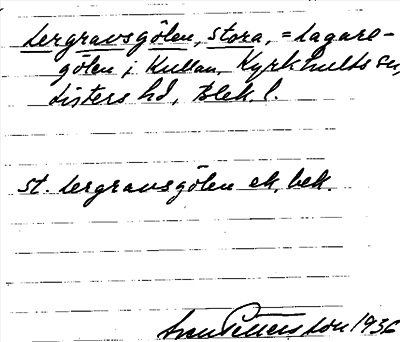 Lergravsgölen, stora, = Lagare-
gölen i Kullan, Kyrkhults sn,
Listers hd, Blek. l.
St. Lergravsgölen ek. bek.
Sven Pettersson 1936